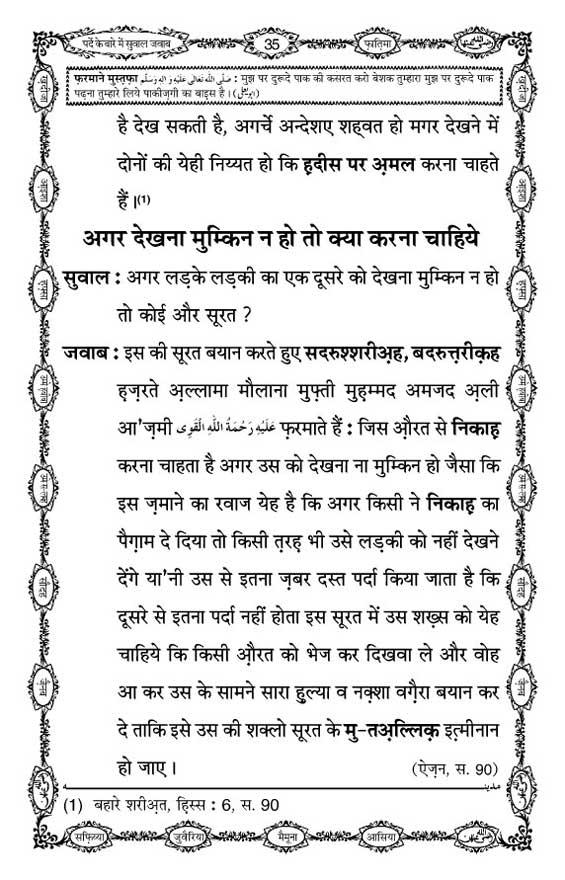 पर्दे के बारे में सुवाल जवाब
35
फ़ातिमा
फ़रमाने मुस्तफ़ा صَلَّى اللّٰهُ تَعَالٰى عَلَيْهِ وَاٰلِهٖ وَسَلَّم : मुझ पर दुरूदे पाक की कसरत करो बेशक तुम्हारा मुझ पर दुरूदे पाक
पढ़ना तुम्हारे लिये पाकीज़गी का बाइस है । (ابویعلی)
है देख सकती है, अगर्चे अन्देशए शह्वत हो मगर देखने में
दोनों की येही निय्यत हो कि ह़दीस पर अ़मल करना चाहते
हैं ।(1)
अगर देखना मुम्किन न हो तो क्या करना चाहिये
सुवाल : अगर लड़के लड़की का एक दूसरे को देखना मुम्किन न हो
तो कोई और सूरत ?
जवाब : इस की सूरत बयान करते हुए सदरुश्शरीअ़ह, बदरुत़्त़रीक़ह
ह़ज़रते अ़ल्लामा मौलाना मुफ़्ती मुह़म्मद अमजद अ़ली
आ'ज़मी عَلَيْهِ رَحْمَةُ اللّٰهِ الْقَوِى फ़रमाते हैं : जिस औ़रत से निकाह़
करना चाहता है अगर उस को देखना ना मुम्किन हो जैसा कि
इस ज़माने का रवाज येह है कि अगर किसी ने निकाह़ का
पैग़ाम दे दिया तो किसी त़रह़ भी उसे लड़की को नहीं देखने
देंगे या'नी उस से इतना ज़बर दस्त पर्दा किया जाता है कि
दूसरे से इतना पर्दा नहीं होता इस सूरत में उस शख़्स को येह
चाहिये कि किसी औ़रत को भेज कर दिखवा ले और वोह
आ कर उस के सामने सारा ह़ुल्या व नक़्शा वग़ैरा बयान कर
दे ताकि इसे उस की शक्लो सूरत के मु-तअ़ल्लिक़ इत़्मीनान
हो जाए ।
(ऐज़न, स. 90)
(1) बहारे शरीअ़त, हिस्स : 6, स. 90
सफ़िय्या
जुवैरिया
मैमूना
आसिया